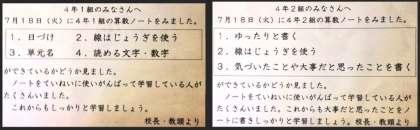 4年1組のみなさんへ
7月18日（火）に4年1組の算数ノートをみました。
1．日づけ　2．線はじょうぎを使う
3．単元名　4．読める文字・数字
ができているかどうか見ました。
ノートをていねいに使いがんばって学習している人がたくさんいました。
これからもしっかりと学習しましょう。
校長・教頭より
4年2組のみなさんへ
7月18日（火）に4年2組の算数ノートをみました。
1．ゆったりと書く
2．線はじょうぎを使う
3．気づいたことや大事だと思ったことを書く
ができているかどうか見ました。
ノートをていねいに使いがんばって学習している人がたくさんいました。これからも大事だと思ったことをノートに書きしっかりと学習しましょう。
校長・教頭より